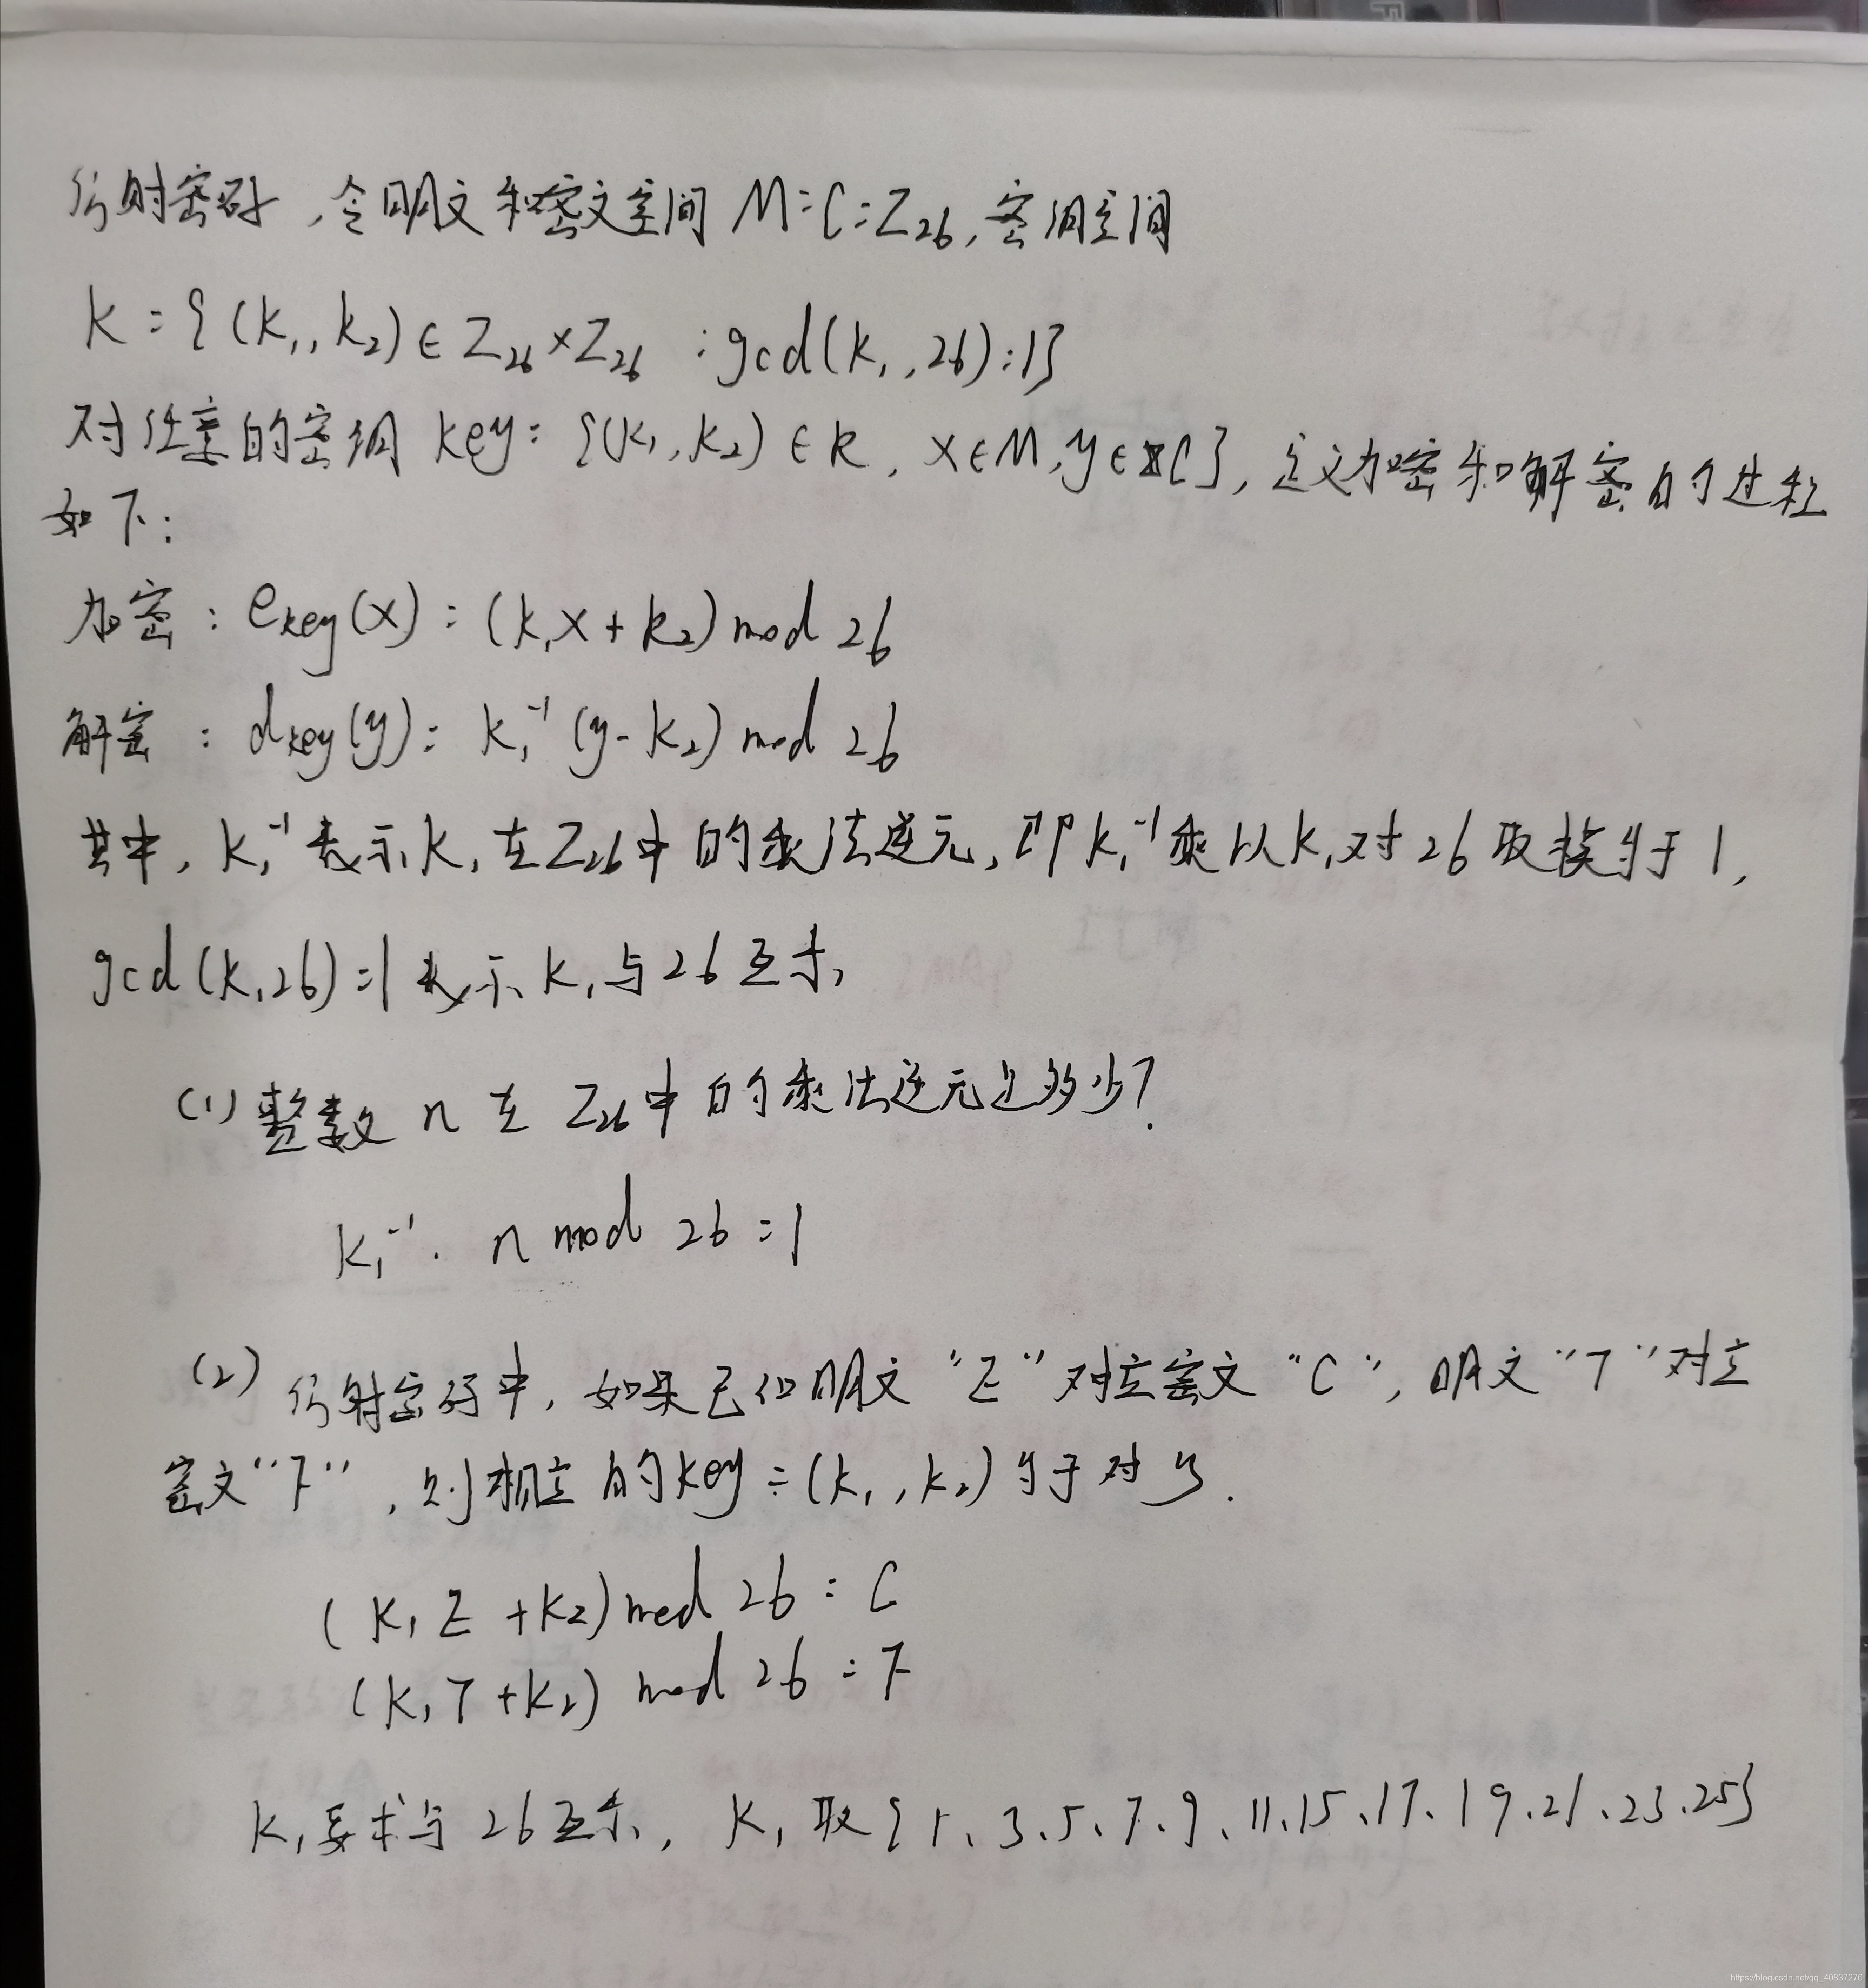 仿射密码,令明文和密文空间 M=C=Z₂₆,密钥空间
K={(k₁,k₂)∈Z₂₆×Z₂₆ :gcd(k₁,26)=1}
对任意的密钥 key={(k₁,k₂)∈K,x∈M,y∈C},定义加密和解密的过程
如下:
加密:e_key(x)=(k₁x+k₂)mod 26
解密:d_key(y)=k₁⁻¹(y-k₂)mod 26
其中,k₁⁻¹表示k₁在Z₂₆中的乘法逆元,即k₁⁻¹乘以k₁对26取模等于1,
gcd(k₁26)=1表示k₁与26互素,
(1)整数 n 在 Z₂₆中的乘法逆元是多少?
k₁⁻¹· n mod 26=1
(2)仿射密码中,如果已知明文“E”对应密文“C”,明文“T”对应
密文“F”,则相应的key=(k₁,k₂)等于对少.
(k₁E+k₂)mod 26=C
(k₁T+k₂) mod 26=F
k₁要求与26互素,k₁取{1、3、5、7、9、11、15、17、19、21、23、25}
https://blog.csdn.net/qq_40837276